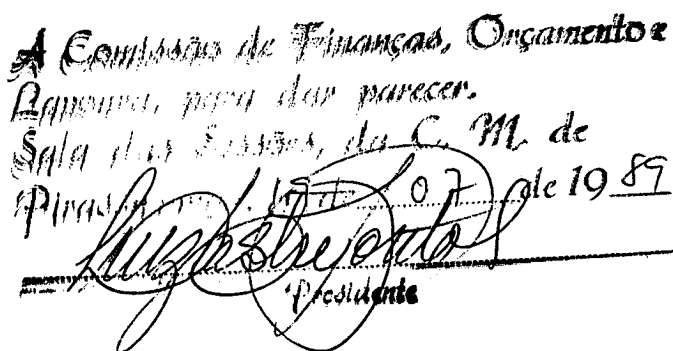 A Comissão de Finanças, Orçamento e
Lavoura, para dar parecer.
Sala das Sessões, da C. M. de
07 de 19 89
Presidente